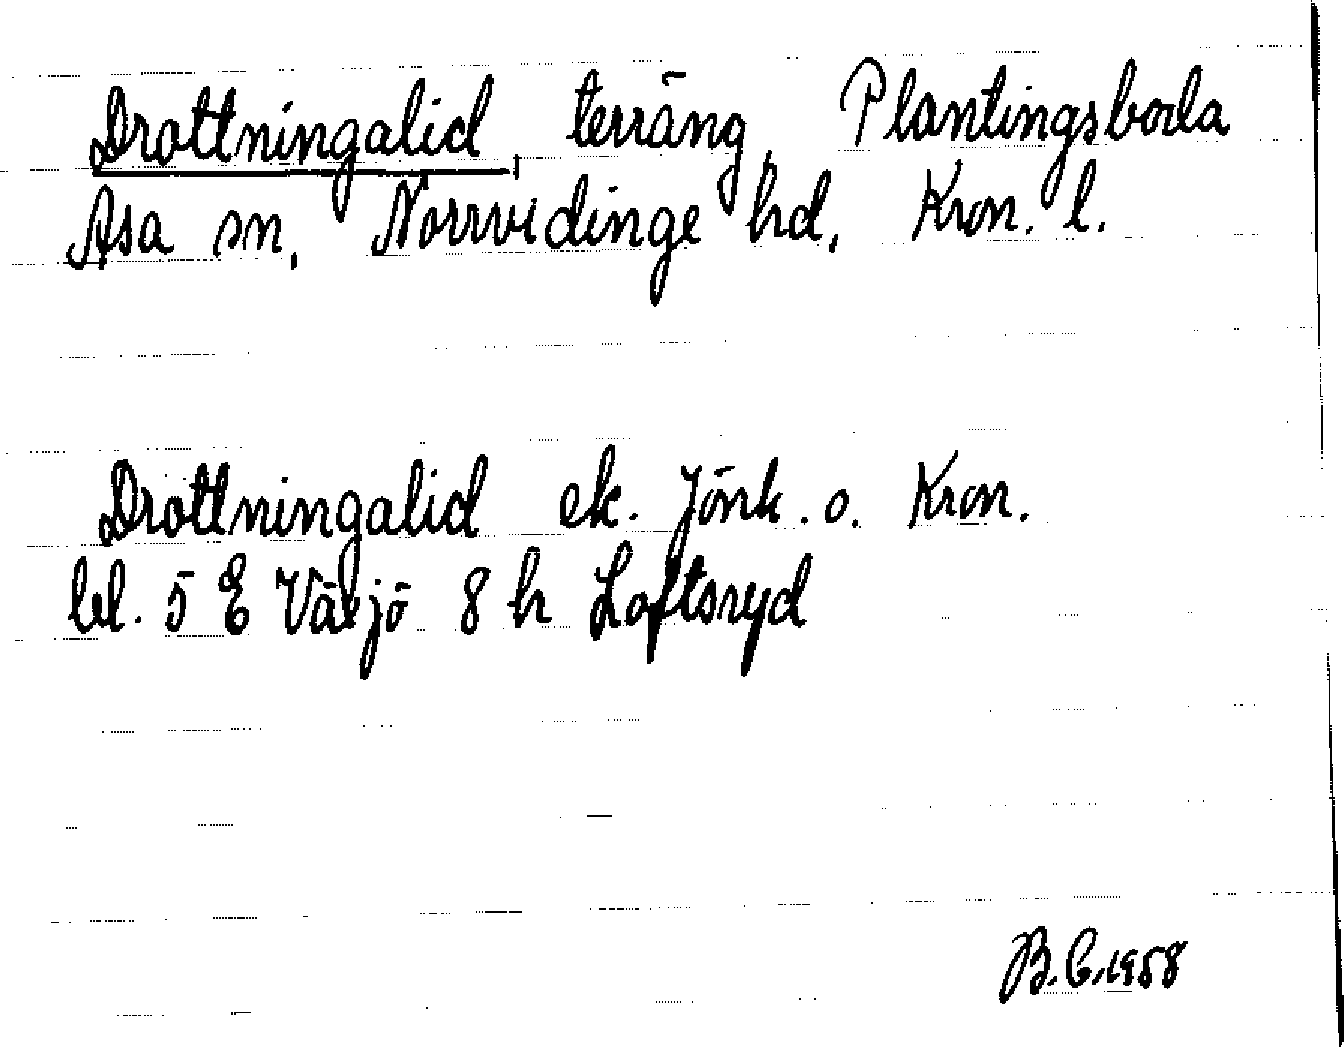 Drottningalid, terräng, Plantingsboda
Asa sn, Norrvidinge hd, Kron. l.
Drottningalid ek. Jönk. o. Kron.
lel. 5 E Växjö 8 h Loftsryd
B.C. 1958